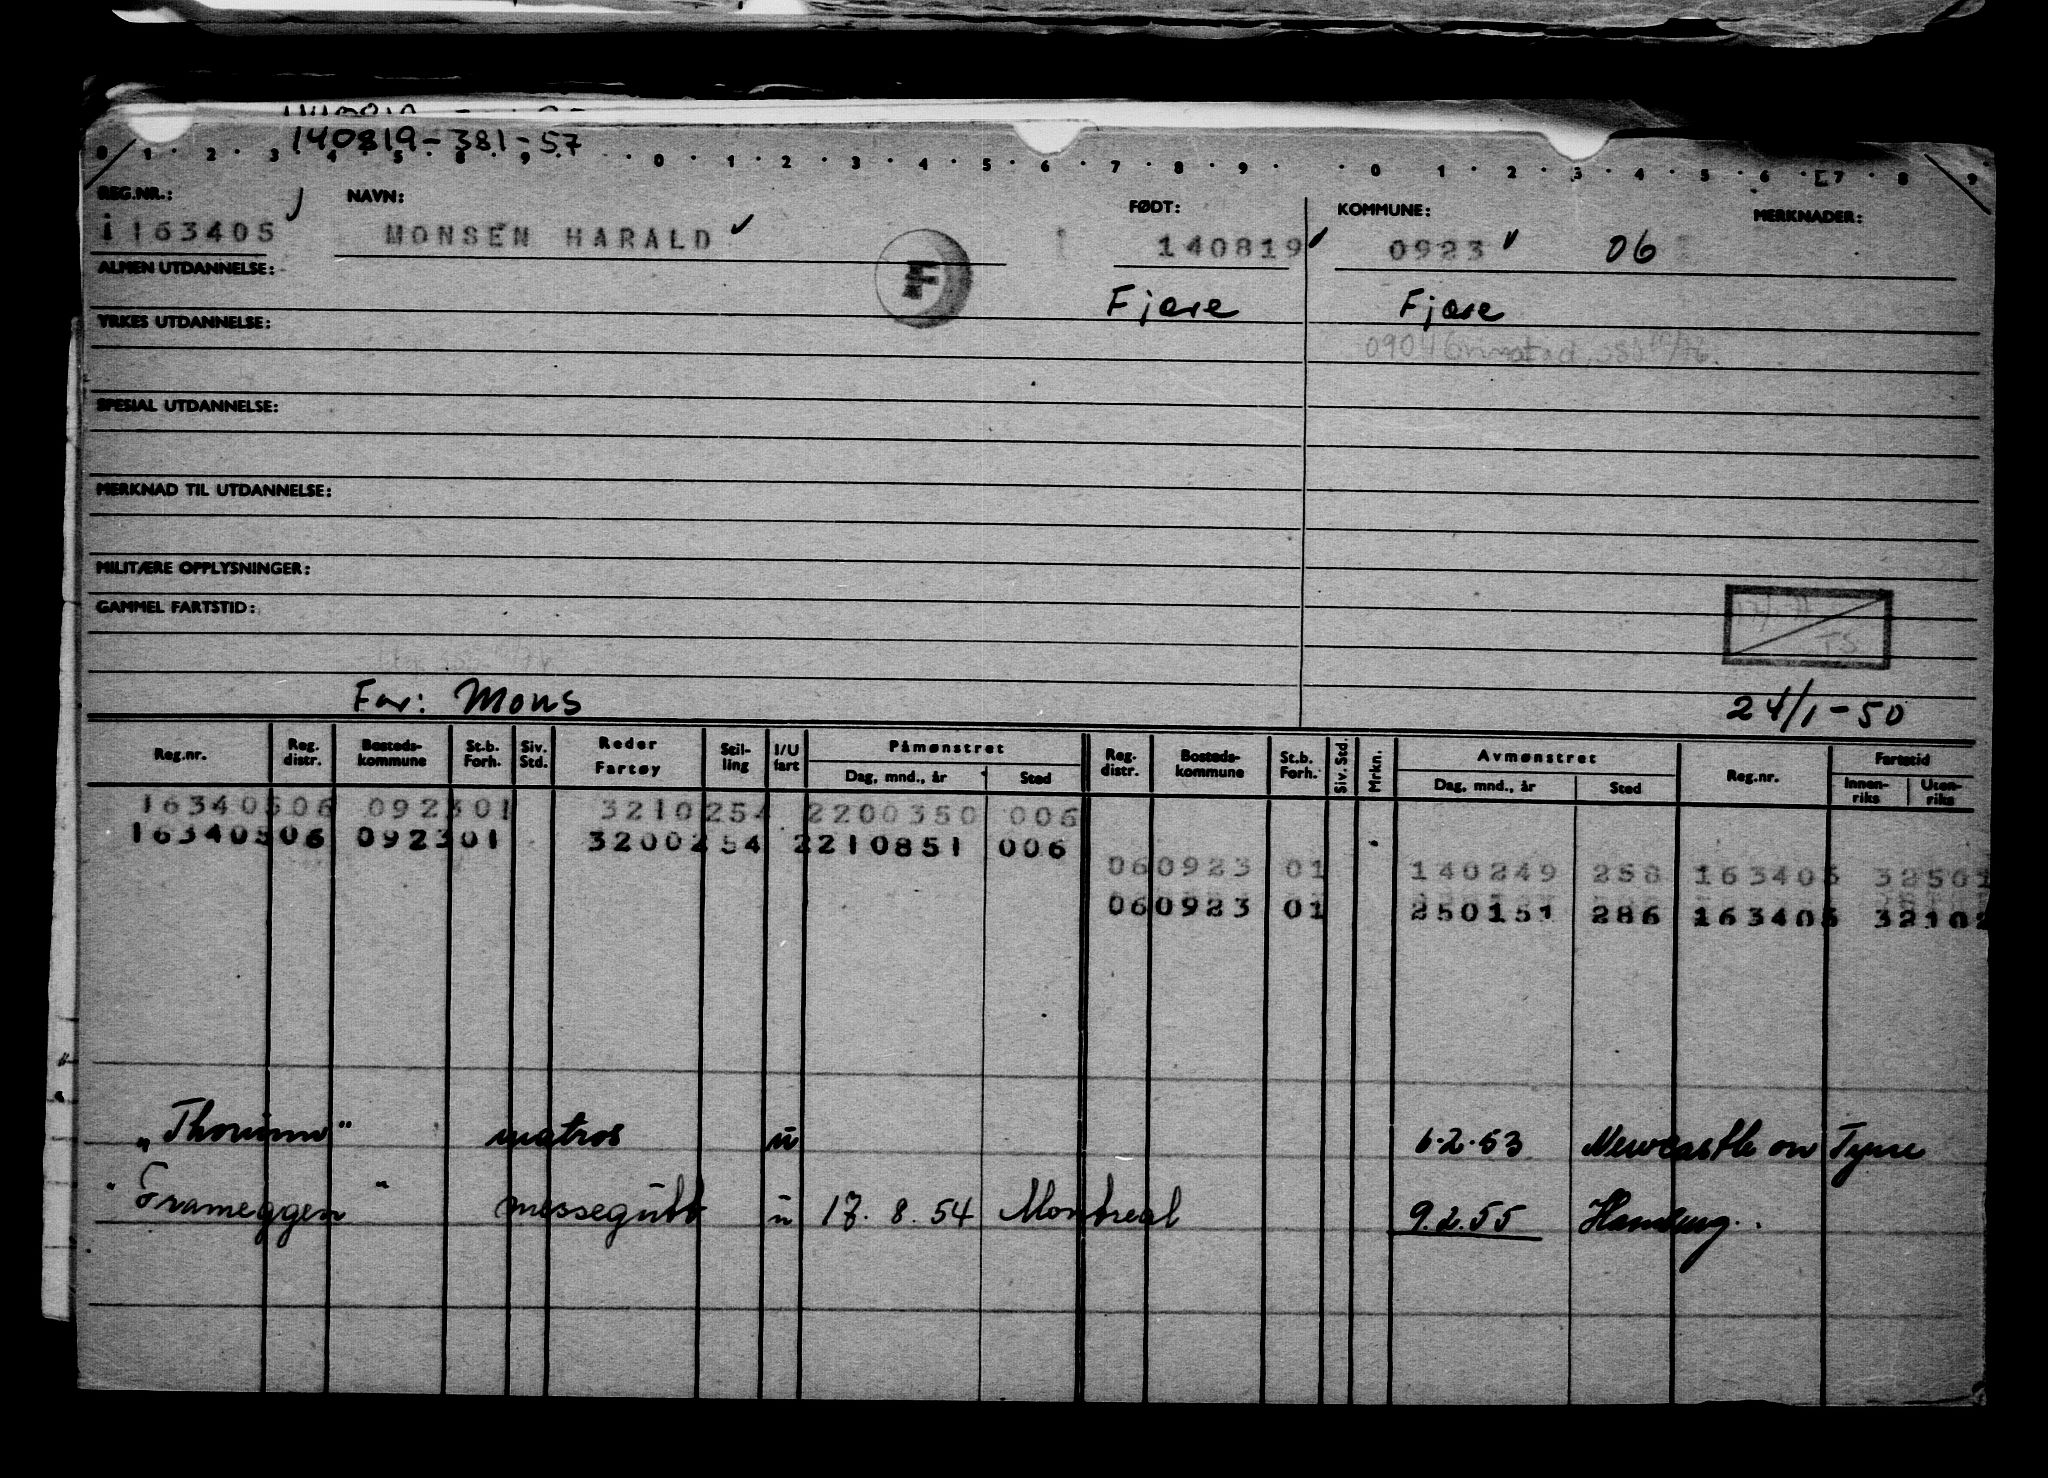 140819-381-57
0 1 2 3 4 5 8 9 0 1 2 3 4 5 6 7 8 9 0 1 2 3 4 5 6 7 8 9
REG.NR.: NAVN: FØDT: KOMMUNE: MERKNADER:
i163405 MONSEN HARALD F 140819 0923 06
ALMEN UTDANNELSE:
Fjære Fjære
YRKES UTDANNELSE:
0904 Grimstad
SPESIAL UTDANNELSE:
MERKNAD TIL UTDANNELSE:
MILITÆRE OPPLYSNINGER:
GAMMEL FARTSTID:
TS
Far: Mons 24/1-50
Reg.nr. Reg. distr. Bosteds-kommune St.b. Forh. Siv. Std. Reder Fartøy Stil-ling I/U fart Påmønstret Dag, mnd., år Sted Reg. distr. Bosteds-kommune St.b. Forh. Siv. Std. Mrkn. Avmønstret Dag, mnd., år Sted Reg.nr. Fartstid Innen-riks Uten-riks
16340506 092301 3210254 2200350 006
16340506 092301 3200254 2210851 006
060923 01 140249 258 163405 32501
060923 01 250151 286 163405 32102
"Thorunn" matros u 6.2.53 Newcastle on Tyne
"Frameggen" messegutt u 17.8.54 Montreal 9.2.55 Hamburg.